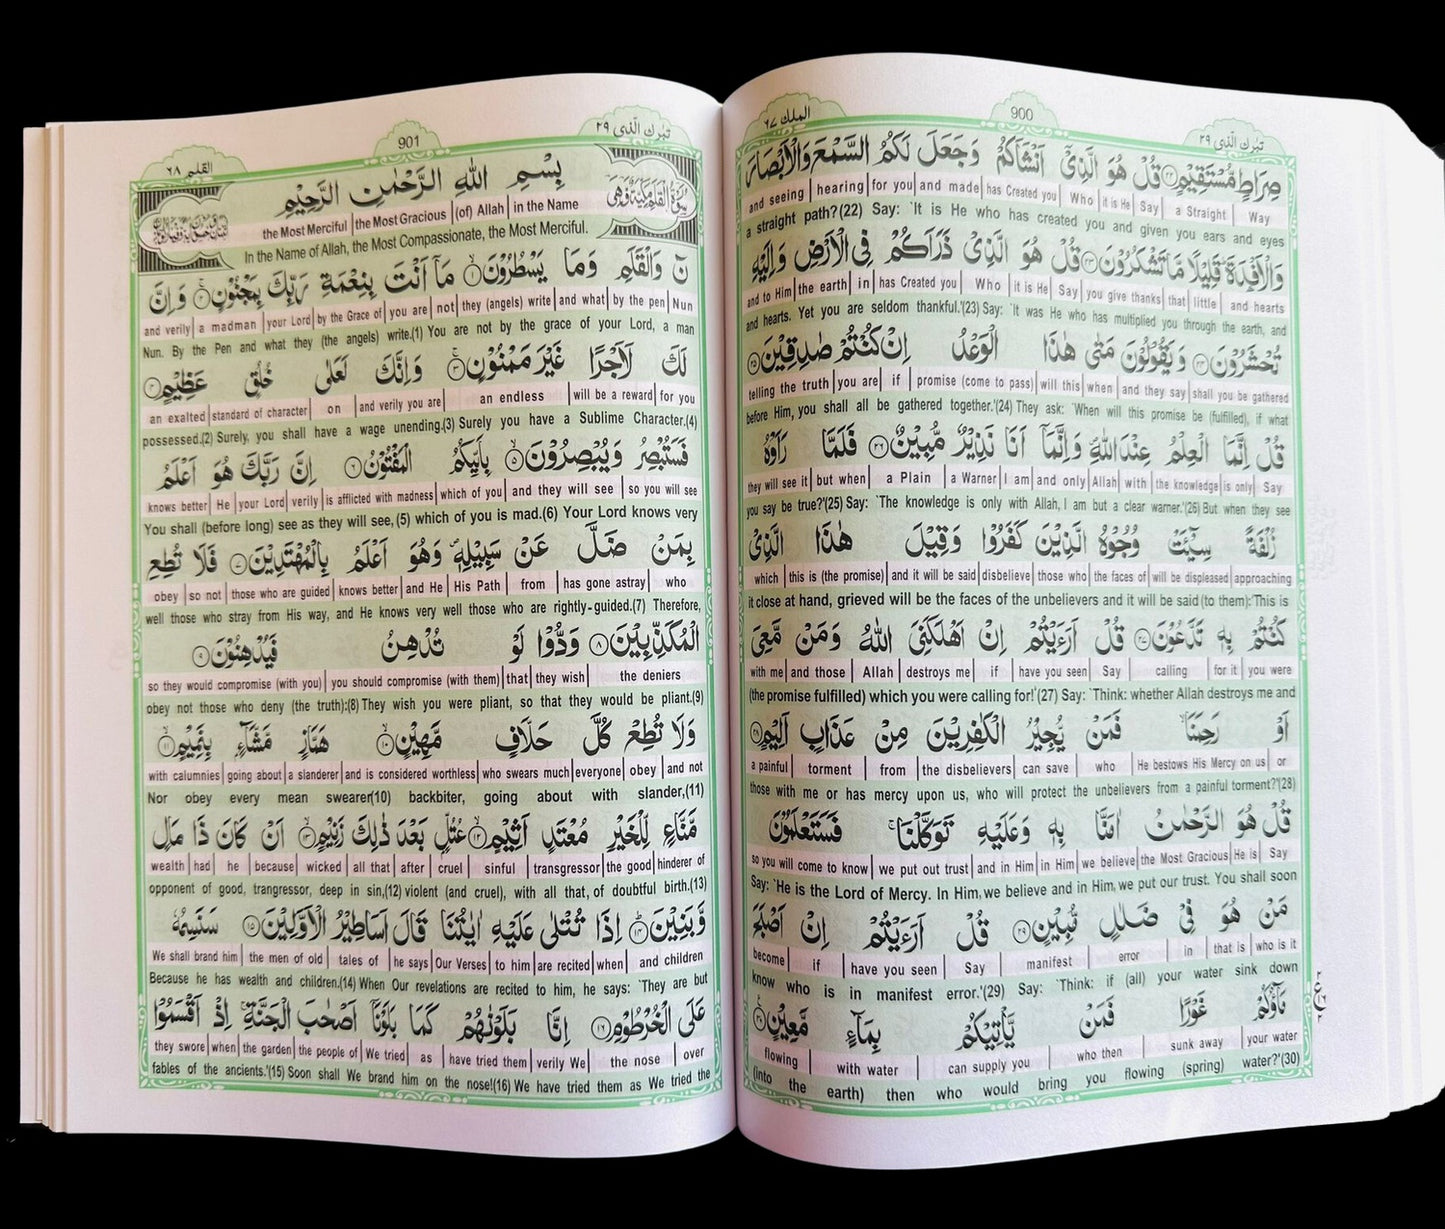 الملك ٦٧
900
تبٰرك الّذى ٢٩
صِرَاطٍ مُّسْتَقِيْمٍ ٢٢ قُلْ هُوَ الَّذِىْٓ اَنْشَاَكُمْ وَجَعَلَ لَكُمُ السَّمْعَ وَالْاَبْصَارَ
and seeing | hearing | for you | and made | has Created you | Who | it is He | Say | a Straight | Way
a straight path?(22) Say: `It is He who has created you and given you ears and eyes
وَالْاَفْـِٕدَةَ قَلِيْلًا مَّا تَشْكُرُوْنَ ٢٣ قُلْ هُوَ الَّذِىْ ذَرَاَكُمْ فِى الْاَرْضِ وَاِلَيْهِ
and to Him | the earth | in | has Created you | Who | it is He | Say | you give thanks | that | little | and hearts
and hearts. Yet you are seldom thankful.'(23) Say: `It was He who has multiplied you through the earth, and
تُحْشَرُوْنَ ٢٤ وَيَقُوْلُوْنَ مَتٰى هٰذَا الْوَعْدُ اِنْ كُنْتُمْ صٰدِقِيْنَ ٢٥
telling the truth | you are | if | promise (come to pass) | will this | when | and they say | shall you be gathered
before Him, you shall all be gathered together.'(24) They ask: `When will this promise be (fulfilled), if what
قُلْ اِنَّمَا الْعِلْمُ عِنْدَ اللّٰهِ وَاِنَّمَآ اَنَا نَذِيْرٌ مُّبِيْنٌ ٢٦ فَلَمَّا رَاَوْهُ
they will see it | but when | a Plain | a Warner | I am | and only | Allah | with | the knowledge | is only | Say
you say be true?'(25) Say: `The knowledge is only with Allah, I am but a clear warner.'(26) But when they see
زُلْفَةً سِيْٓـَٔتْ وُجُوْهُ الَّذِيْنَ كَفَرُوْا وَقِيْلَ هٰذَا الَّذِىْ
which | this is (the promise) | and it will be said | disbelieve | those who | the faces of | will be displeased | approaching
it close at hand, grieved will be the faces of the unbelievers and it will be said (to them): 'This is
كُنْتُمْ بِهٖ تَدَّعُوْنَ ٢٧ قُلْ اَرَءَيْتُمْ اِنْ اَهْلَكَنِىَ اللّٰهُ وَمَنْ مَّعِىَ
with me | and those | Allah | destroys me | if | have you seen | Say | calling | for it | you were
(the promise fulfilled) which you were calling for!'(27) Say: `Think: whether Allah destroys me and
اَوْ رَحِمَنَا فَمَنْ يُّجِيْرُ الْكٰفِرِيْنَ مِنْ عَذَابٍ اَلِيْمٍ ٢٨
a painful | torment | from | the disbelievers | can save | who | He bestows His Mercy on us | or
those with me or has mercy upon us, who will protect the unbelievers from a painful torment?'(28)
قُلْ هُوَ الرَّحْمٰنُ اٰمَنَّا بِهٖ وَعَلَيْهِ تَوَكَّلْنَا فَسَتَعْلَمُوْنَ
so you will come to know | we put out trust | and in Him | in Him | we believe | the Most Gracious | He is | Say
Say: `He is the Lord of Mercy. In Him, we believe and in Him, we put our trust. You shall soon
مَنْ هُوَ فِىْ ضَلٰلٍ مُّبِيْنٍ ٢٩ قُلْ اَرَءَيْتُمْ اِنْ اَصْبَحَ
become | if | have you seen | Say | manifest | error | in | that is | who is it
know who is in manifest error.'(29) Say: `Think: if (all) your water sink down
مَآؤُكُمْ غَوْرًا فَمَنْ يَّاْتِيْكُمْ بِمَآءٍ مَّعِيْنٍ ٣٠
flowing | with water | can supply you | who then | sunk away | your water
(into the earth) then who would bring you flowing (spring) water?'(30)
القلم ٦٨
901
تبٰرك الّذى ٢٩
سُوْرَةُ الْقَلَمِ مَكِّيَّةٌ وَّهِىَ
بِسْمِ اللّٰهِ الرَّحْمٰنِ الرَّحِيْمِ
the Most Merciful | the Most Gracious | (of) Allah | in the Name
In the Name of Allah, the Most Compassionate, the Most Merciful.
نٓ وَالْقَلَمِ وَمَا يَسْطُرُوْنَ ١ مَآ اَنْتَ بِنِعْمَةِ رَبِّكَ بِمَجْنُوْنٍ ٢ وَاِنَّ
and verily | a madman | your Lord | by the Grace of | you are | not | they (angels) write | and what | by the pen | Nun
Nun. By the Pen and what they (the angels) write.(1) You are not by the grace of your Lord, a man
لَكَ لَاَجْرًا غَيْرَ مَمْنُوْنٍ ٣ وَاِنَّكَ لَعَلٰى خُلُقٍ عَظِيْمٍ ٤
an exalted | standard of character | on | and verily you are | an endless | will be a reward | for you
possessed.(2) Surely, you shall have a wage unending.(3) Surely you have a Sublime Character.(4)
فَسَتُبْصِرُ وَيُبْصِرُوْنَ ٥ بِاَيِّكُمُ الْمَفْتُوْنُ ٦ اِنَّ رَبَّكَ هُوَ اَعْلَمُ
knows better | He | your Lord | verily | is afflicted with madness | which of you | and they will see | so you will see
You shall (before long) see as they will see, (5) which of you is mad.(6) Your Lord knows very
بِمَنْ ضَلَّ عَنْ سَبِيْلِهٖ وَهُوَ اَعْلَمُ بِالْمُهْتَدِيْنَ ٧ فَلَا تُطِعِ
obey | so not | those who are guided | knows better | and He | His Path | from | has gone astray | who
well those who stray from His way, and He knows very well those who are rightly-guided.(7) Therefore,
الْمُكَذِّبِيْنَ ٨ وَدُّوْا لَوْ تُدْهِنُ فَيُدْهِنُوْنَ ٩
so they would compromise (with you) | you should compromise (with them) | that | they wish | the deniers
obey not those who deny (the truth):(8) They wish you were pliant, so that they would be pliant.(9)
وَلَا تُطِعْ كُلَّ حَلَّافٍ مَّهِيْنٍ ١٠ هَمَّازٍ مَّشَّآءٍۭ بِنَمِيْمٍ ١١
with calumnies | going about | a slanderer | and is considered worthless | who swears much | everyone | obey | and not
Nor obey every mean swearer(10) backbiter, going about with slander,(11)
مَّنَّاعٍ لِّلْخَيْرِ مُعْتَدٍ اَثِيْمٍ ١٢ عُتُلٍّۭ بَعْدَ ذٰلِكَ زَنِيْمٍ ١٣ اَنْ كَانَ ذَا مَالٍ
wealth | had | he | because | wicked | all that | after | cruel | sinful | transgressor | the good | hinderer of
opponent of good, trangressor, deep in sin,(12) violent (and cruel), with all that, of doubtful birth.(13)
وَّبَنِيْنَ ١٤ اِذَا تُتْلٰى عَلَيْهِ اٰيٰتُنَا قَالَ اَسَاطِيْرُ الْاَوَّلِيْنَ ١٥ سَنَسِمُهٗ
We shall brand him | the men of old | tales of | he says | Our Verses | to him | are recited | when | and children
Because he has wealth and children.(14) When Our revelations are recited to him, he says: `They are but
عَلَى الْخُرْطُوْمِ ١٦ اِنَّا بَلَوْنٰهُمْ كَمَا بَلَوْنَآ اَصْحٰبَ الْجَنَّةِ اِذْ اَقْسَمُوْا
they swore | when | the garden | the people of | We tried | as | have tried them | verily We | the nose | over
fables of the ancients.'(15) Soon shall We brand him on the nose!(16) We have tried them as We tried the